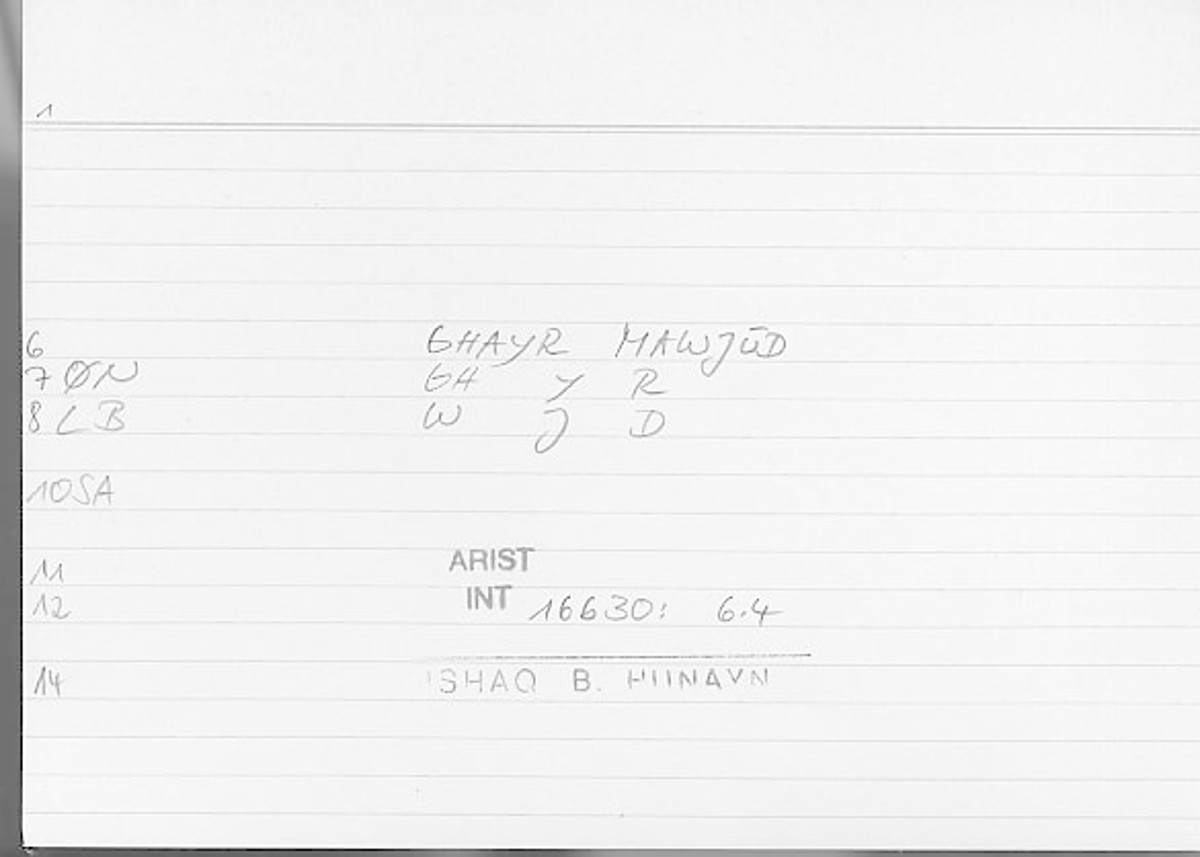 1
6 GHAYR MAWJŪD
7 ØN GH Y R
8 LB W J D
10 SA
ARIST
11
INT
12 16630: 6.4
14 ISHAQ B. HUNAYN